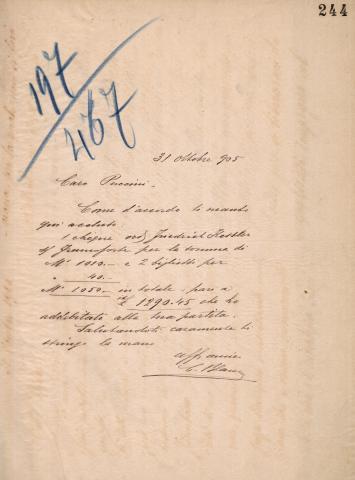 244
197/467
31 Ottobre 905
Caro Puccini.
Come d'accordo ti mando
qui accluso:
1 chèque Friedrich
s/ Francoforte per la somma di
M. 1010.— e 2 biglietti per
" 40.—
M. 1050.— in totale, pari a
£ 1290.45 che ho
addebitato alla tua partita.
Salutandoti caramente ti
stringo la mano
aff amico
C.